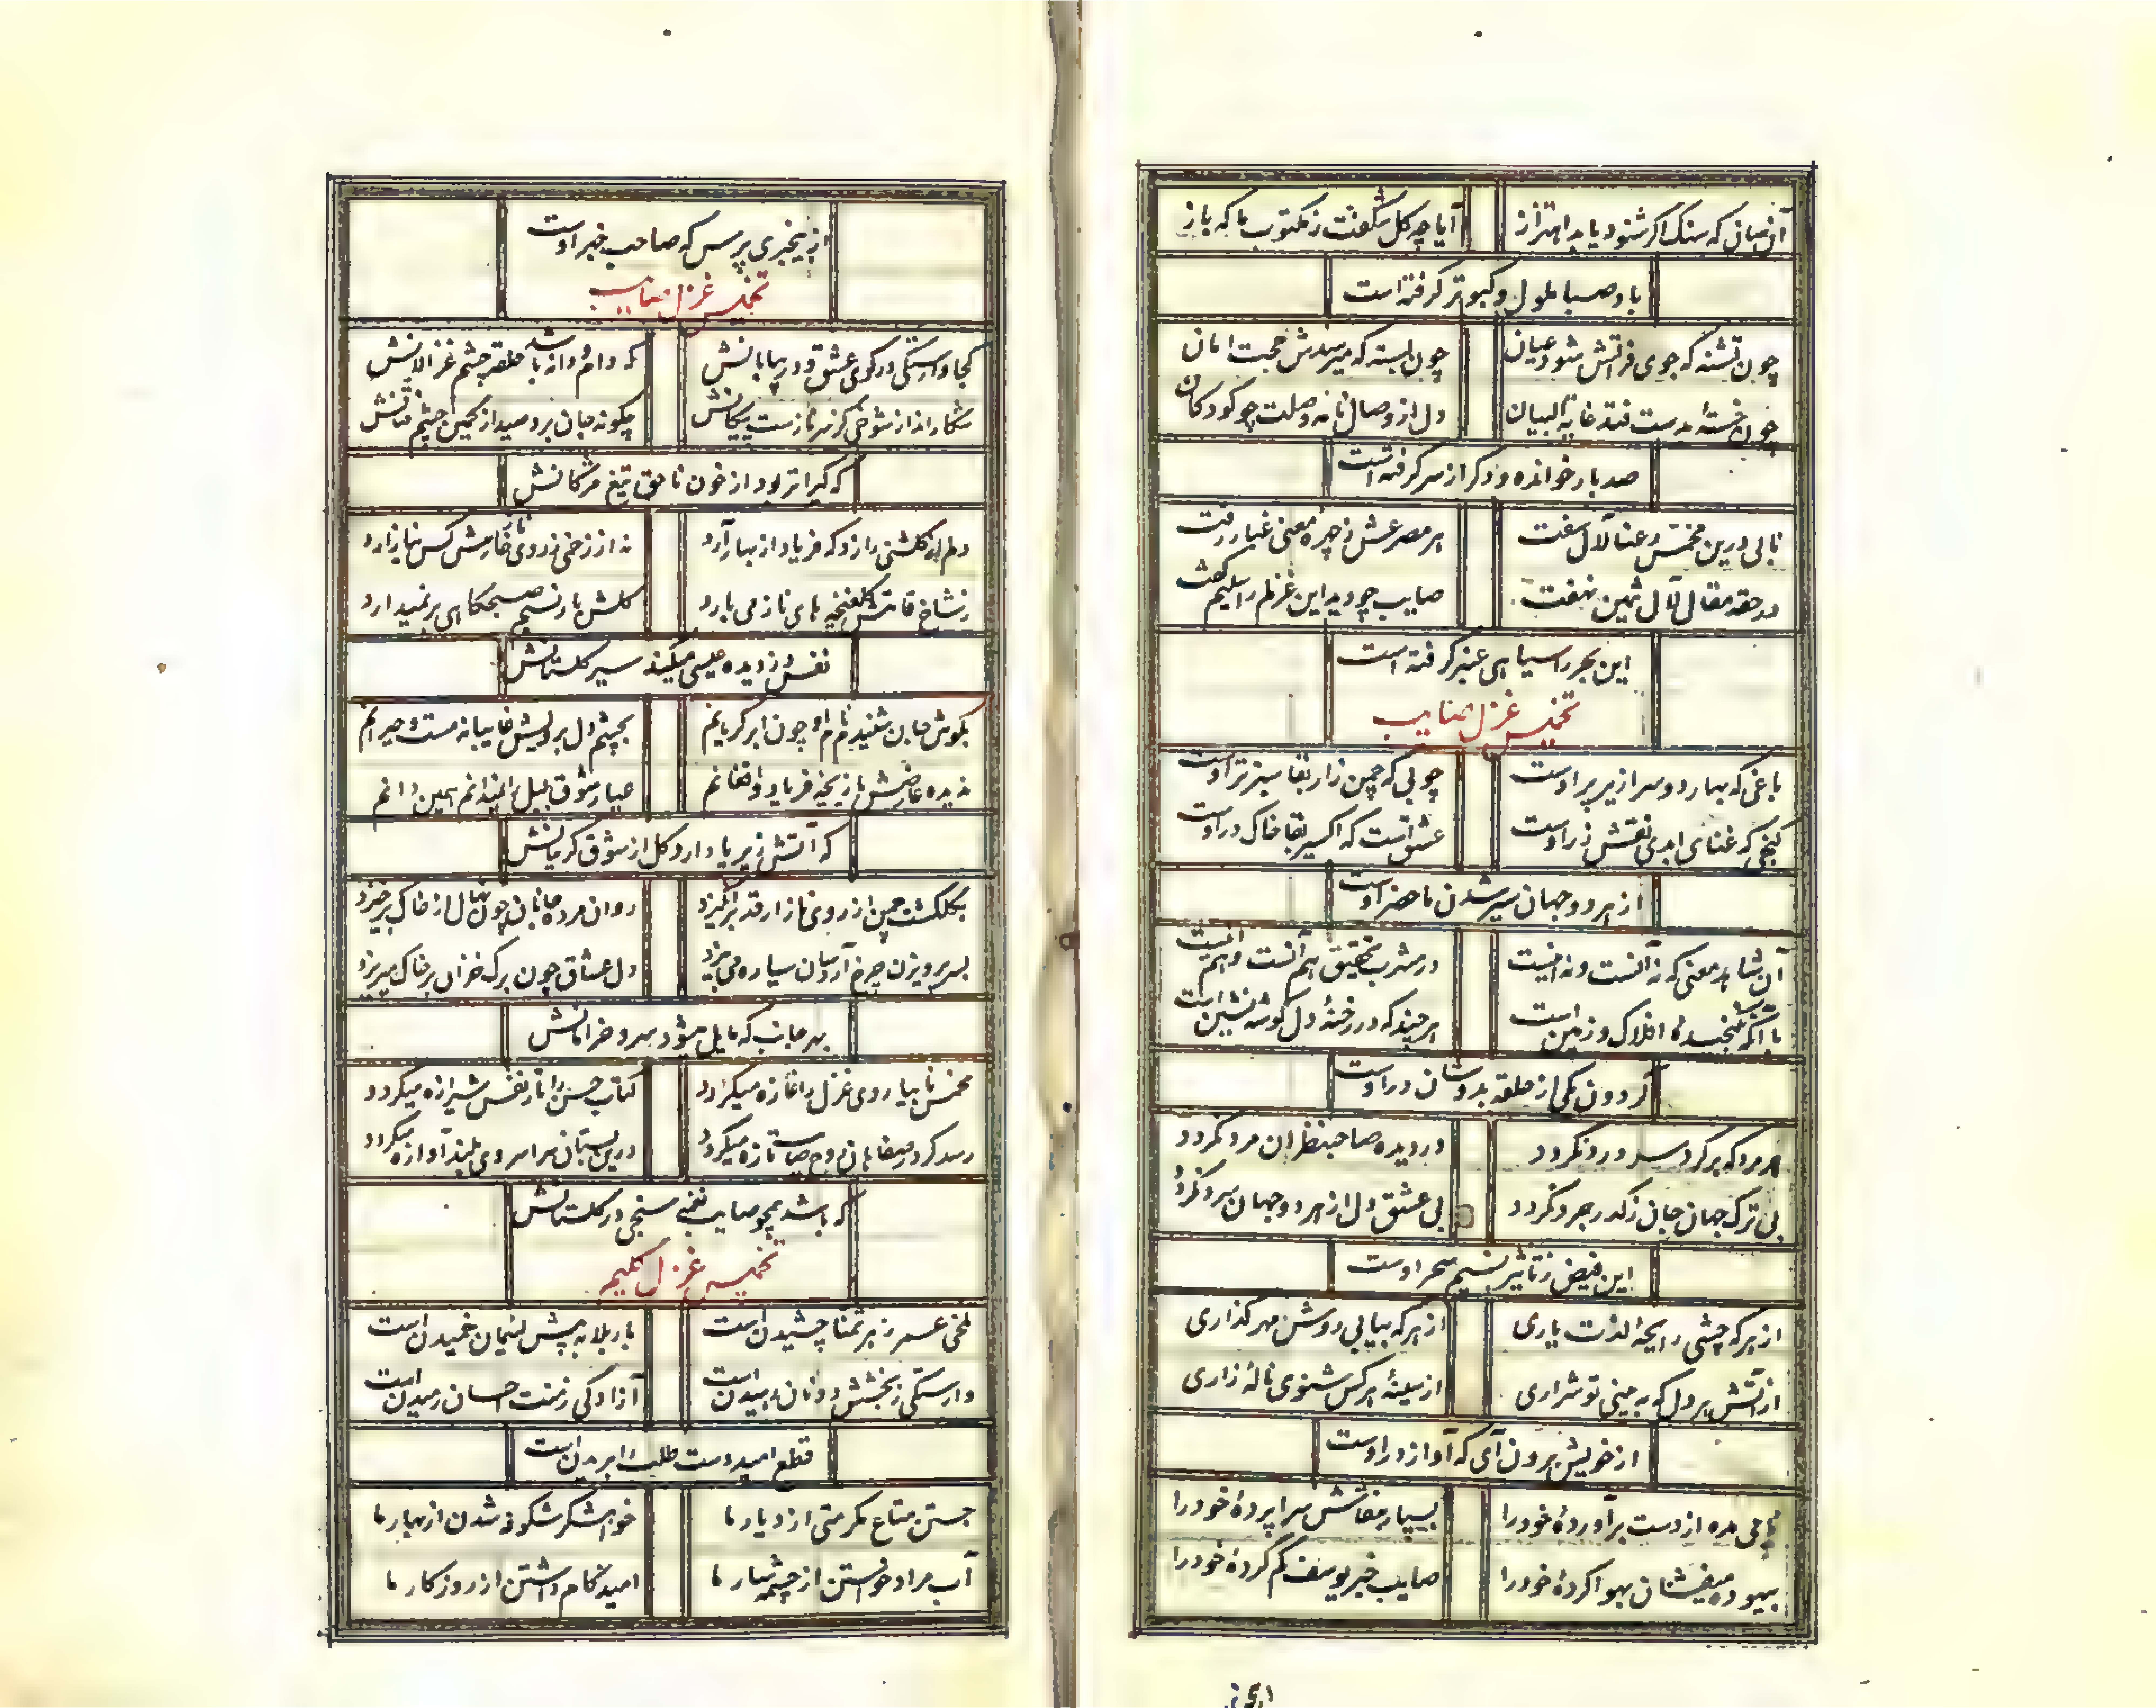 آن سان که سنک اکر شنود یابد اهتزاز آیا چه کل شکفت ز مکتوب ما که باز
باد صبا ملول و کبوتر کرفته است
چون تشنه که جوی فراتش شود عیان چون بسته که میرسدش حجت امان
چون خستهٔ بدست فتد غایة البیان دل از وصال نامه وصلت چو کودکان
صد بار خوانده و دکر از سر کرفته است
نابی درین مخمس رعنا لآل سفت هر مصرعش ز چهرهٔ معنی غبار رفت
در حقه مقال لآل ثمین نهفت صایب چو دید این غزلم را سلیم گفت
این بحر را سیاهی عنبر کرفته است
تخمیس غزل صایب
باغی که بهار دو سرا زیر پر اوست چوبی که چمن زار بقا سبز تر اوست
کنجی که غنای ابدی نقش زر اوست عشق است که اکسیر بقا خاک در اوست
از هر دو جهان سیر شدن ماحضر اوست
آن شاهد معنی که نه آنست و نه اینست در مشرب تحقیق هم آنست و هم اینست
با آنکه نکنجیدهٔ افلاک و زمین است هر چند که در رخنهٔ دل کوشه نشین است
کردون یکی از حلقه بدوشان در اوست
هر مرد که پر کرد سر درد نکردد در دیده صاحبنظران مرد نکردد
بی ترک جهان جان ز کدر مجرد نکردد بی عشق دل از هر دو جهان سرد نکردد
این فیض ز تاثیر نسیم سحر اوست
از هر که چشی رایحهٔ لذت یاری از هر که بیابی روش مهر کذاری
از آتش هر دل که به بینی تو شراری از سینهٔ هر کس شنوی نالهٔ زاری
از خویش برون آی که آواز در اوست
نابی مده از دست بر آوردهٔ خود را بسپار مفاتش سرا پردهٔ خود را
بیهوده میفشان بهوا کردهٔ خود را صایب خبر یوسف کم کردهٔ خود را
از بیخبری پرس که صاحب خبر اوست
تخمیس غزل صایب
کجا وارستکی در کوی عشق و در بیابانش که دام و دانه باشد حلقه چشم غزالانش
شکار انداز شوخی کز سر نازست پیکانش چکونه جان برد صید از کمین چشم فتانش
که کیراتر بود از خون ناحق تیغ مژکانش
دلم کلشنی دارد که فریاد از بهار آرد نه از زخمی ز روی ناز خارش کس نیازارد
ز شاخ قامتش کلغنچه های ناز می بارد کلش بار نسیم صبحکاهی بر نمیدارد
نفس دزدیده عیسی میکند سیر کلستانش
بکوش جان شنیدم نام او چون ابر کریانم بچشم دل برویش غایبانه مست و حیرانم
ندیده عارضش باز یخچه فریاد و افغانم عیار شوق بلبل را نمیدانم همین دانم
که آتش زیر پا دارد کل از شوق کریبانش
بکلکشت چمن از روی ناز ار قد بر انکیزد روان مرده جانان چون نهال از خاک بر خیزد
بسر پرویزن چرخ آردسان سیاره می بیزد دل عشاق چون برک خزان بر خاک میریزد
بهر جانب که مایل میشود سرو خرامانش
مخمس نابیا روی غزل را غازه میکردد کتاب حسن را تار نفس شیرازه میکردد
رسد کر در صفاهان روح صایب تازه میکردد درین بستان سرا سروی بلند آوازه میکردد
که باشد همچو صایب نغمه سنجی در کلستانش
تخمیس غزل کلیم
تلخی عسر زهر تمنا چشیدن است بار بلا به پیش لئیمان خمیدن است
وارستکی ز بخشش دونان رمیدن است آزادکی ز منت احسان رمیدن است
قطع امید دست طلب را بریدن است
جستن متاع مکرمتی از دیار ما خواهشکر شکوفه شدن از بهار ما
آب مراد خواستن از چشمه سار ما امید کام داشتن از روزکار ما